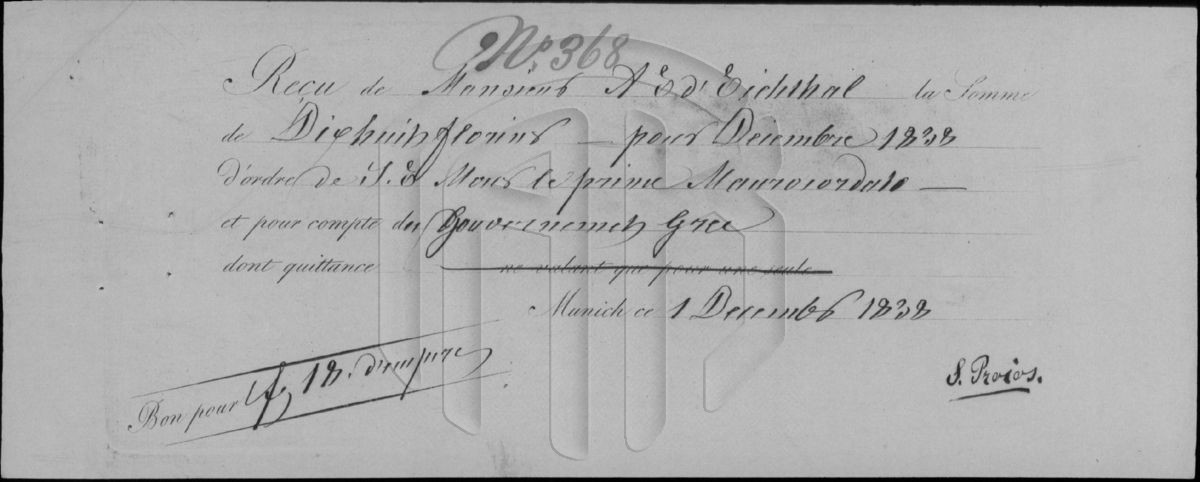 No. 368
Reçu de Monsieur A E d'Eichthal la Somme
de Dixhuit florins — pour Decembre 1838
d'ordre de S. E Monsr le prince Maurocordato —
et pour compte du Gouvernement Grec
dont quittance ne valant que pour une seule
Munich ce 1 Decembre 1838
Bon pour f 18. d'empire
S. Proios.